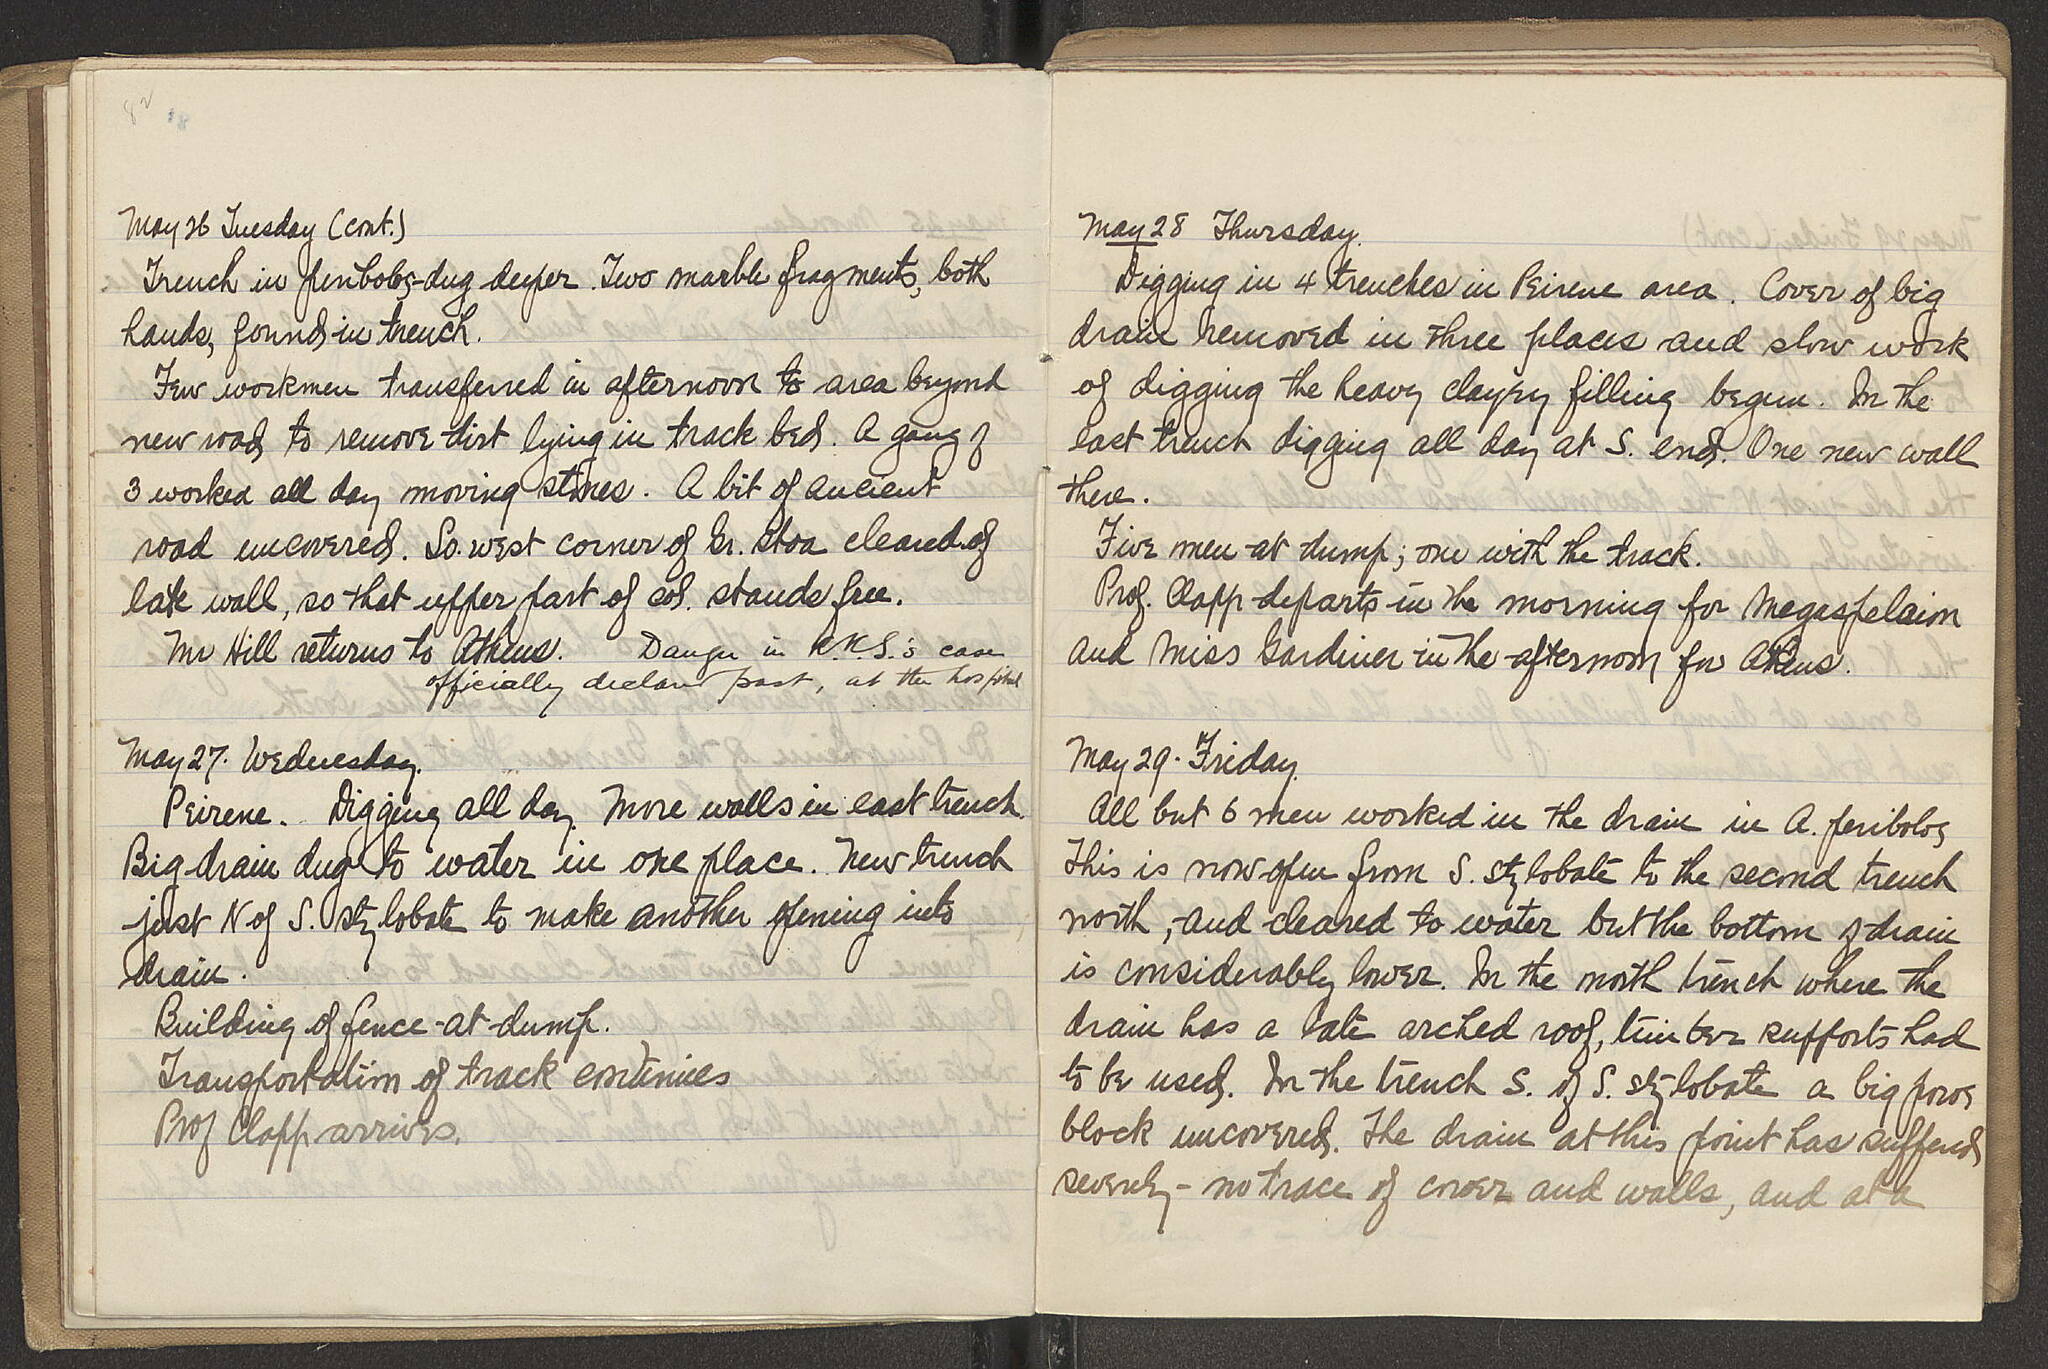 82
May 26 Tuesday (cont.)
Trench in peribolos-dug deeper. Two marble fragments, both
hands, found in trench.
Few workmen transferred in afternoon to area beyond
new road to remove dirt lying in track bed. A gang of
3 worked all day moving stones. A bit of ancient
road uncovered. So. west corner of Gr. Stoa cleared of
late wall, so that upper part of col. stands free.
Mr Hill returns to Athens. Danger in K.K.S.'s case
officially declared past, at the hospital
May 27. Wednesday.
Peirene. Digging all day. More walls in east trench.
Big drain dug to water in one place. New trench
just N of S. stylobate to make another opening into
drain.
Building of fence at dump.
Transportation of track continues
Prof Clapp arrives.
May 28 Thursday.
Digging in 4 trenches in Peirene area. Cover of big
drain removed in three places and slow work
of digging the heavy clayey filling begun. In the
east trench digging all day at S. end. One new wall
there.
Five men at dump; one with the track.
Prof. Clapp departs in the morning for Megaspelaion
and Miss Gardiner in the afternoon for Athens.
May 29. Friday.
All but 6 men worked in the drain in A. peribolos
This is now open from S. stylobate to the second trench
north, and cleared to water but the bottom of drain
is considerably lower. In the north trench where the
drain has a late arched roof, timber supports had
to be used. In the trench S. of S. stylobate a big poros
block uncovered. The drain at this point has suffered
severely - no trace of cover and walls, and at a